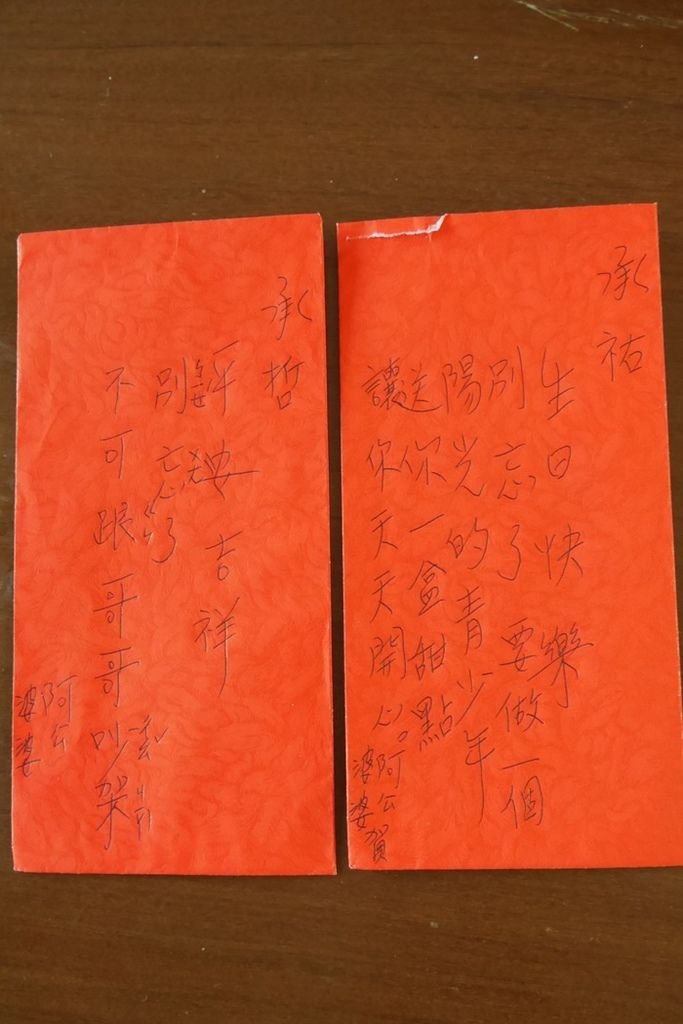 承祐
生日快樂
別忘了要做一個
陽光的青少年
送你一盒甜點
讓你天天開心。
阿公賀
婆婆
承哲
平安吉祥
別忘了
不可跟哥哥吵架
阿公
婆婆